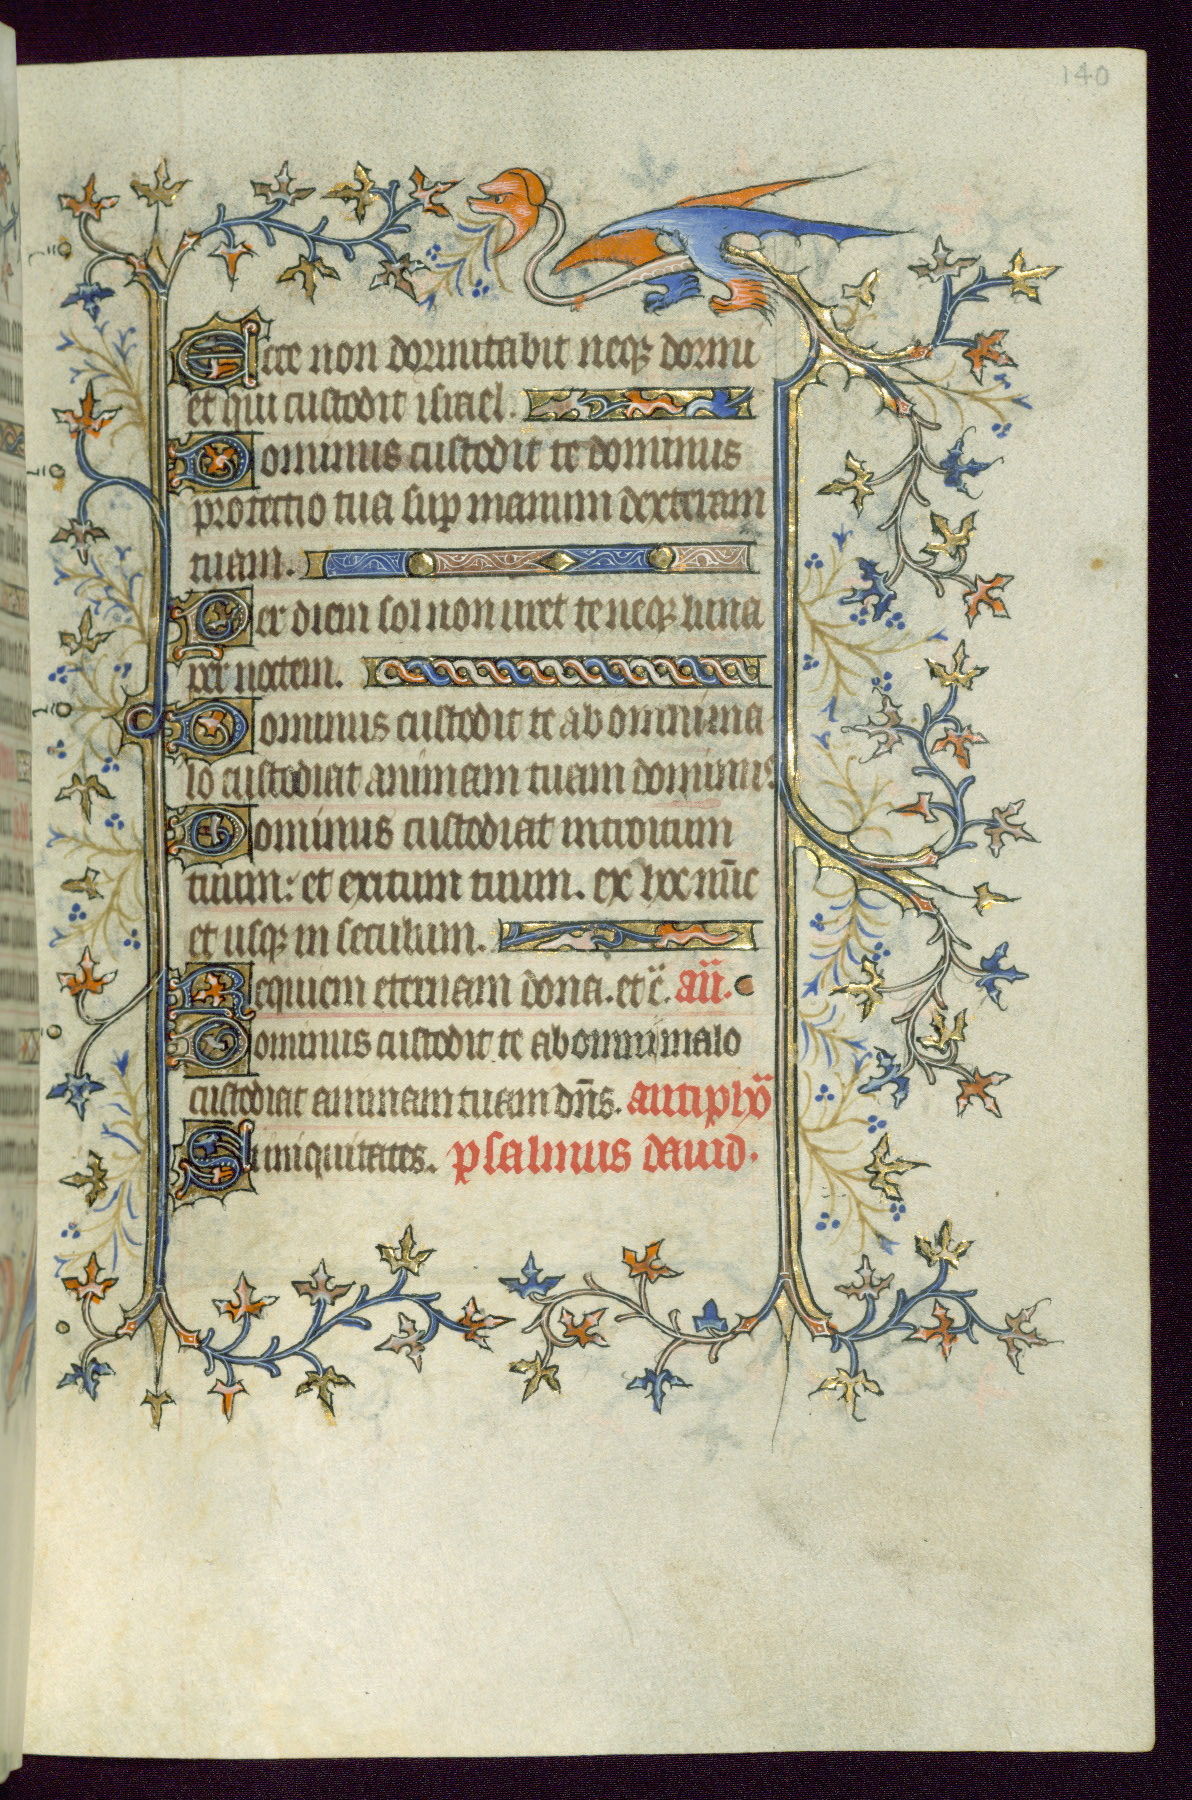 140
Ecce non dormitabit neqꝫ dormi
et qui custodit israel.
Dominus custodit te dominus
protectio tua sup manum dexteram
tuam.
Per diem sol non uret te neqꝫ luna
per noctem.
Dominus custodit te ab omni ma
lo custodiat animam tuam dominus
Dominus custodiat introitum
tuum: et exitum tuum. ex hoc nūc
et usqꝫ in seculum.
Requiem eternam dona. et c̄. an̄.
Dominus custodit te ab omni malo
custodiat animam tuam dn̄s. antiphō
Si iniquitates. psalmus dauid.